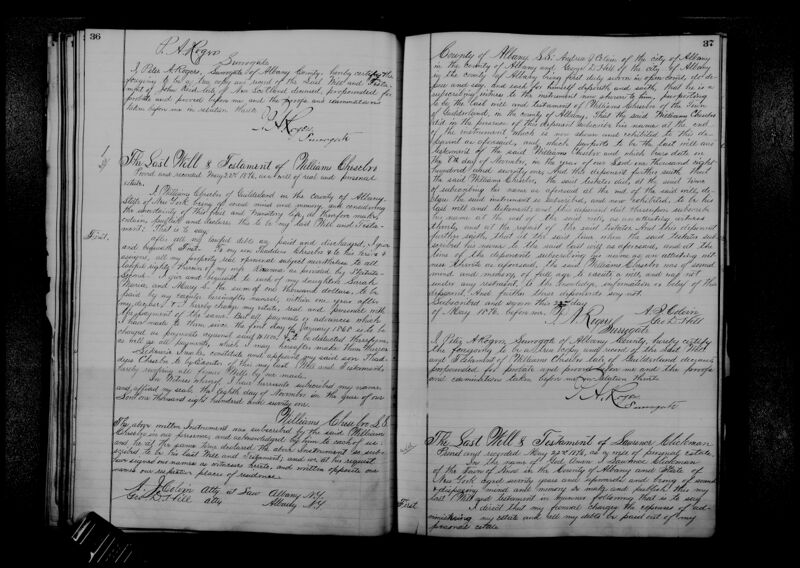 36
P. A. Rogers
Surrogate
I, Peter A. Rogers, Surrogate of Albany County, hereby certify the
foregoing to be a true copy and record of the Last Will and Testa-
ment of John Reid late of New Scotland deceased, propounded for
probate and proved before me and the proofs and examinations
taken before me in relation thereto
P. A. Rogers
Surrogate
The Last Will & Testament of Williams Chesebro
Proved and recorded May 22d 1876, as a will of real and personal
estate.
I Williams Chesebro of Guilderland in the county of Albany
State of New York being of sound mind and memory, and considering
the uncertainty of this frail and transitory life, do therefore make,
ordain, publish and declare this to be my last Will and Testa-
ment: That is to say,
First.
after all my lawful debts are paid and discharged, I give
and bequeath First - To my son Thaddeus Chesebro & to his heirs &
assigns, all my property, real & personal subject nevertheless to all
lawful rights therein of my wife as provided by Statute.
Second - I give and bequeath to each of my daughters Sarah
Maria, and Mary E. the sum of one thousand dollars, to be
paid by my executor hereinafter named, within one year after
my decease, & I hereby charge my estate, real and personal with
the payment of the same. But all payments or advances which
I have made to them since the first day of January 1865 is to be
charged as payments against said sums & to be deducted therefrom,
as well as all payments, which I may hereafter make them thereon
Likewise I make, constitute and appoint my said son Thad-
deus Chesebro to be executor of this my last Will and Testament,
hereby revoking all former Wills by me made.
In Witness whereof I have hereunto subscribed my name
and affixed my seal, the eighth day of November in the year of our
Lord one thousand eight hundred and seventy one.
Williams Chesebro L.S.
The above written Instrument was subscribed by the said Williams
Chesebro in our presence, and acknowledged by him to each of us:
and he at the same time declared the above Instrument so sub-
scribed to be his last Will and Testament; and we at his request
have signed our names as witnesses hereto, and written opposite our
names our respective places of residence.
A. J. Colvin Atty at Law Albany N.Y.
Geo. L. Hill atty Albany N.Y.
37
County of Albany S.S: Andrew J. Colvin of the city of Albany
in the County of Albany and George L. Hill of the city of Albany
in the county of Albany being first duly sworn in open court, do de-
pose and say, and each for himself deposeth and saith, that he is a
subscribing witness to the instrument now shown to him, purporting
to be the last will and testament of Williams Chesebro of the Town
of Guilderland, in the county of Albany, That the said Williams Chesebro
did in the presence of this deponent subscribe his name at the end
of the instrument which is now shown and exhibited to this de-
ponent as aforesaid, and which purports to be the last will and
testament of the said Williams Chesebro and which bears date on
the 8th day of November, in the year of our Lord one thousand eight
hundred and seventy one; And this deponent further saith that
the said Williams Chesebro the said testator did, at the said time
of subscribing his name as aforesaid at the end of the said will, de-
clare the said instrument so subscribed, and now exhibited, to be his
last will and testament; and this deponent did thereupon subscribe
his name at the end of the said will, as an attesting witness
thereto, and at the request of the said testator. And this deponent
further saith, that at the said time when the said Testator sub-
scribed his name to the said last will as aforesaid, and at the
time of the deponent subscribing his name as an attesting wit-
ness thereto as aforesaid, the said Williams Chesebro was of sound
mind and memory, of full age to execute a will, and was not
under any restraint, to the knowledge, information or belief of this
deponent. And further these deponents say not.
Subscribed and sworn this 22d day
of May 1876, before me.
A. J. Colvin
Geo. L. Hill
P. A. Rogers
Surrogate
I, Peter A. Rogers Surrogate of Albany County, hereby certify
the foregoing to be a true copy and record of the Last Will
and Testament of Williams Chesebro late of Guilderland deceased
propounded for probate and proved before me and the proofs
and examinations taken before me in relation thereto
P. A. Rogers
Surrogate
The Last Will & Testament of Lawrence Clickman
Proved and recorded May 22d 1876, as a will of personal estate.
In the name of God, Amen. I Lawrence Clickman
of the Town of in the County of Albany and State of
New York aged seventy years and upwards and being of sound
& disposing mind and memory do make and publish this my
last Will and testament in manner following that is to say
First
I direct that my funeral charges the expenses of ad-
ministering my estate and all my debts be paid out of my
personal estate